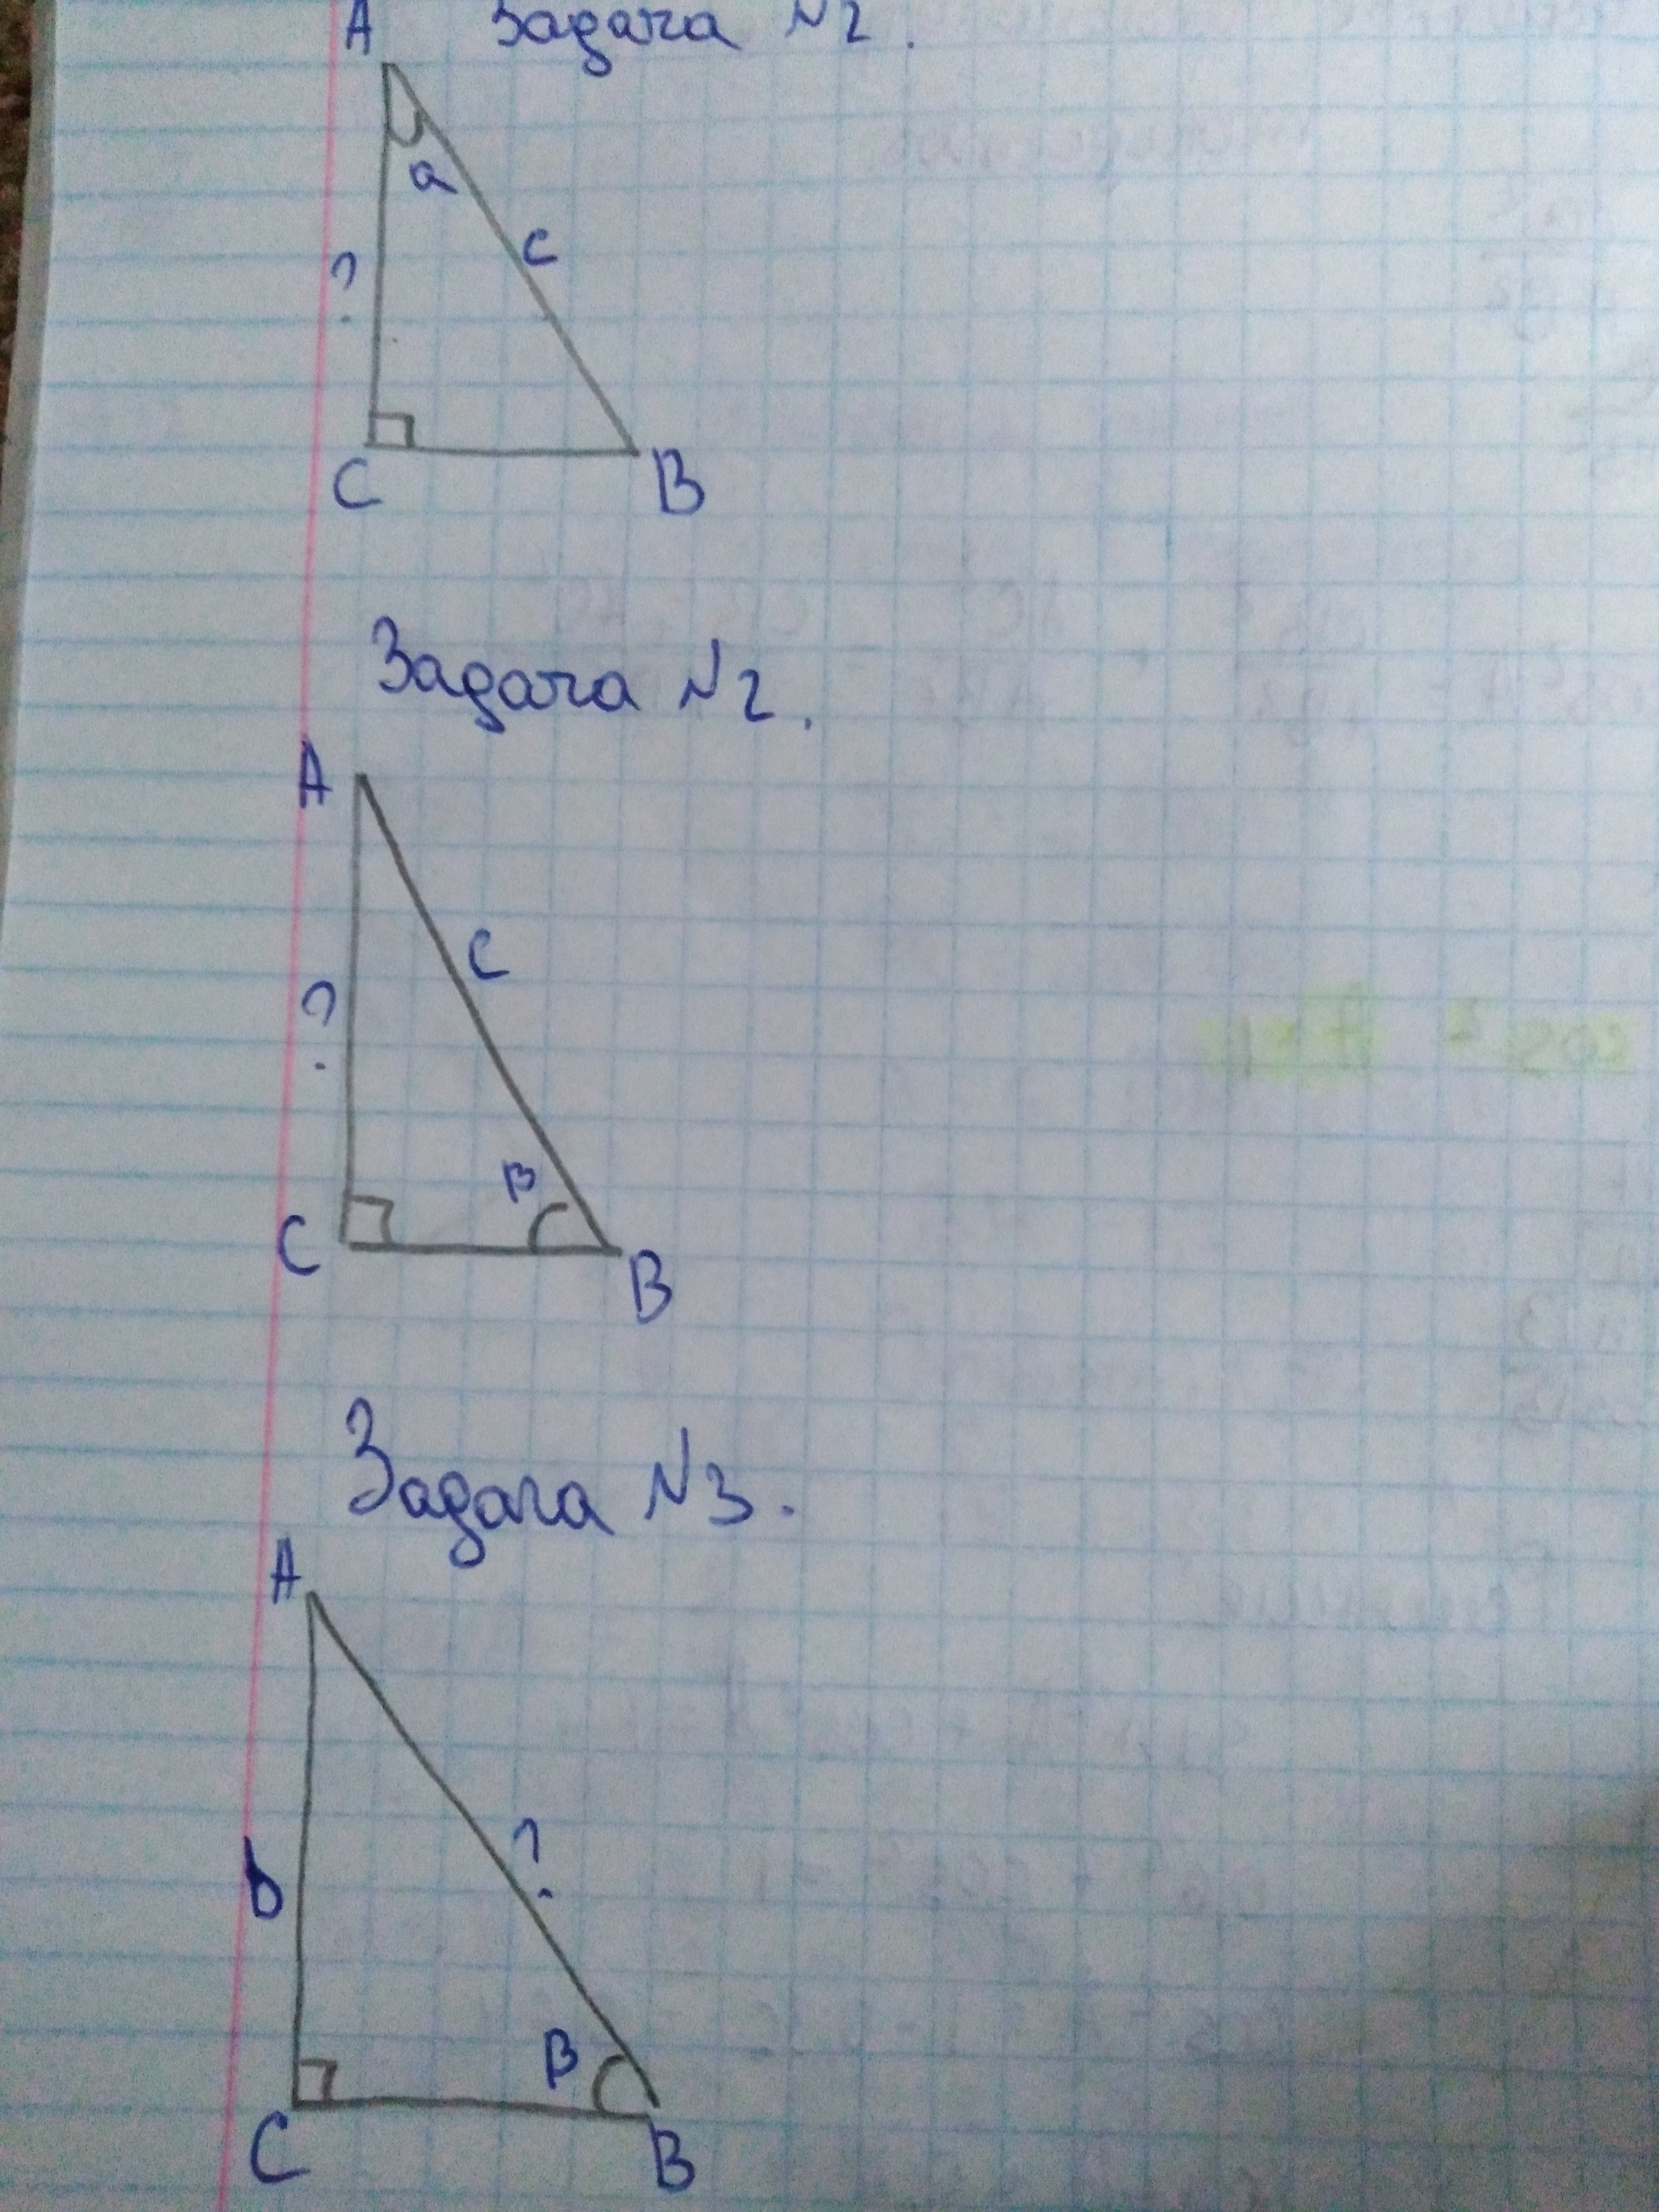 A Задача №2.
a
c
?
C B
Задача №2.
A
c
?
β
C
B
Задача №3.
A
?
b
β
C B